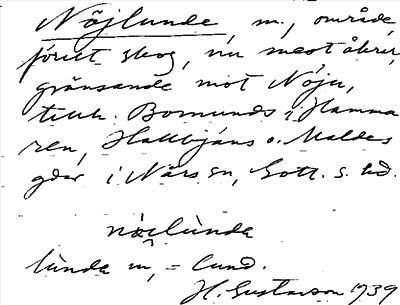 Nöjlunde, m., område,
förut skog, nu mest åkrar,
gränsande mot Nöju,
tillh. Bomunds i Hamma
ren, Hallbjäns o. Maldes
gdar i Närs sn, Gott. s. hd.
lùnda m, = lund.
H. Gustavson 1939